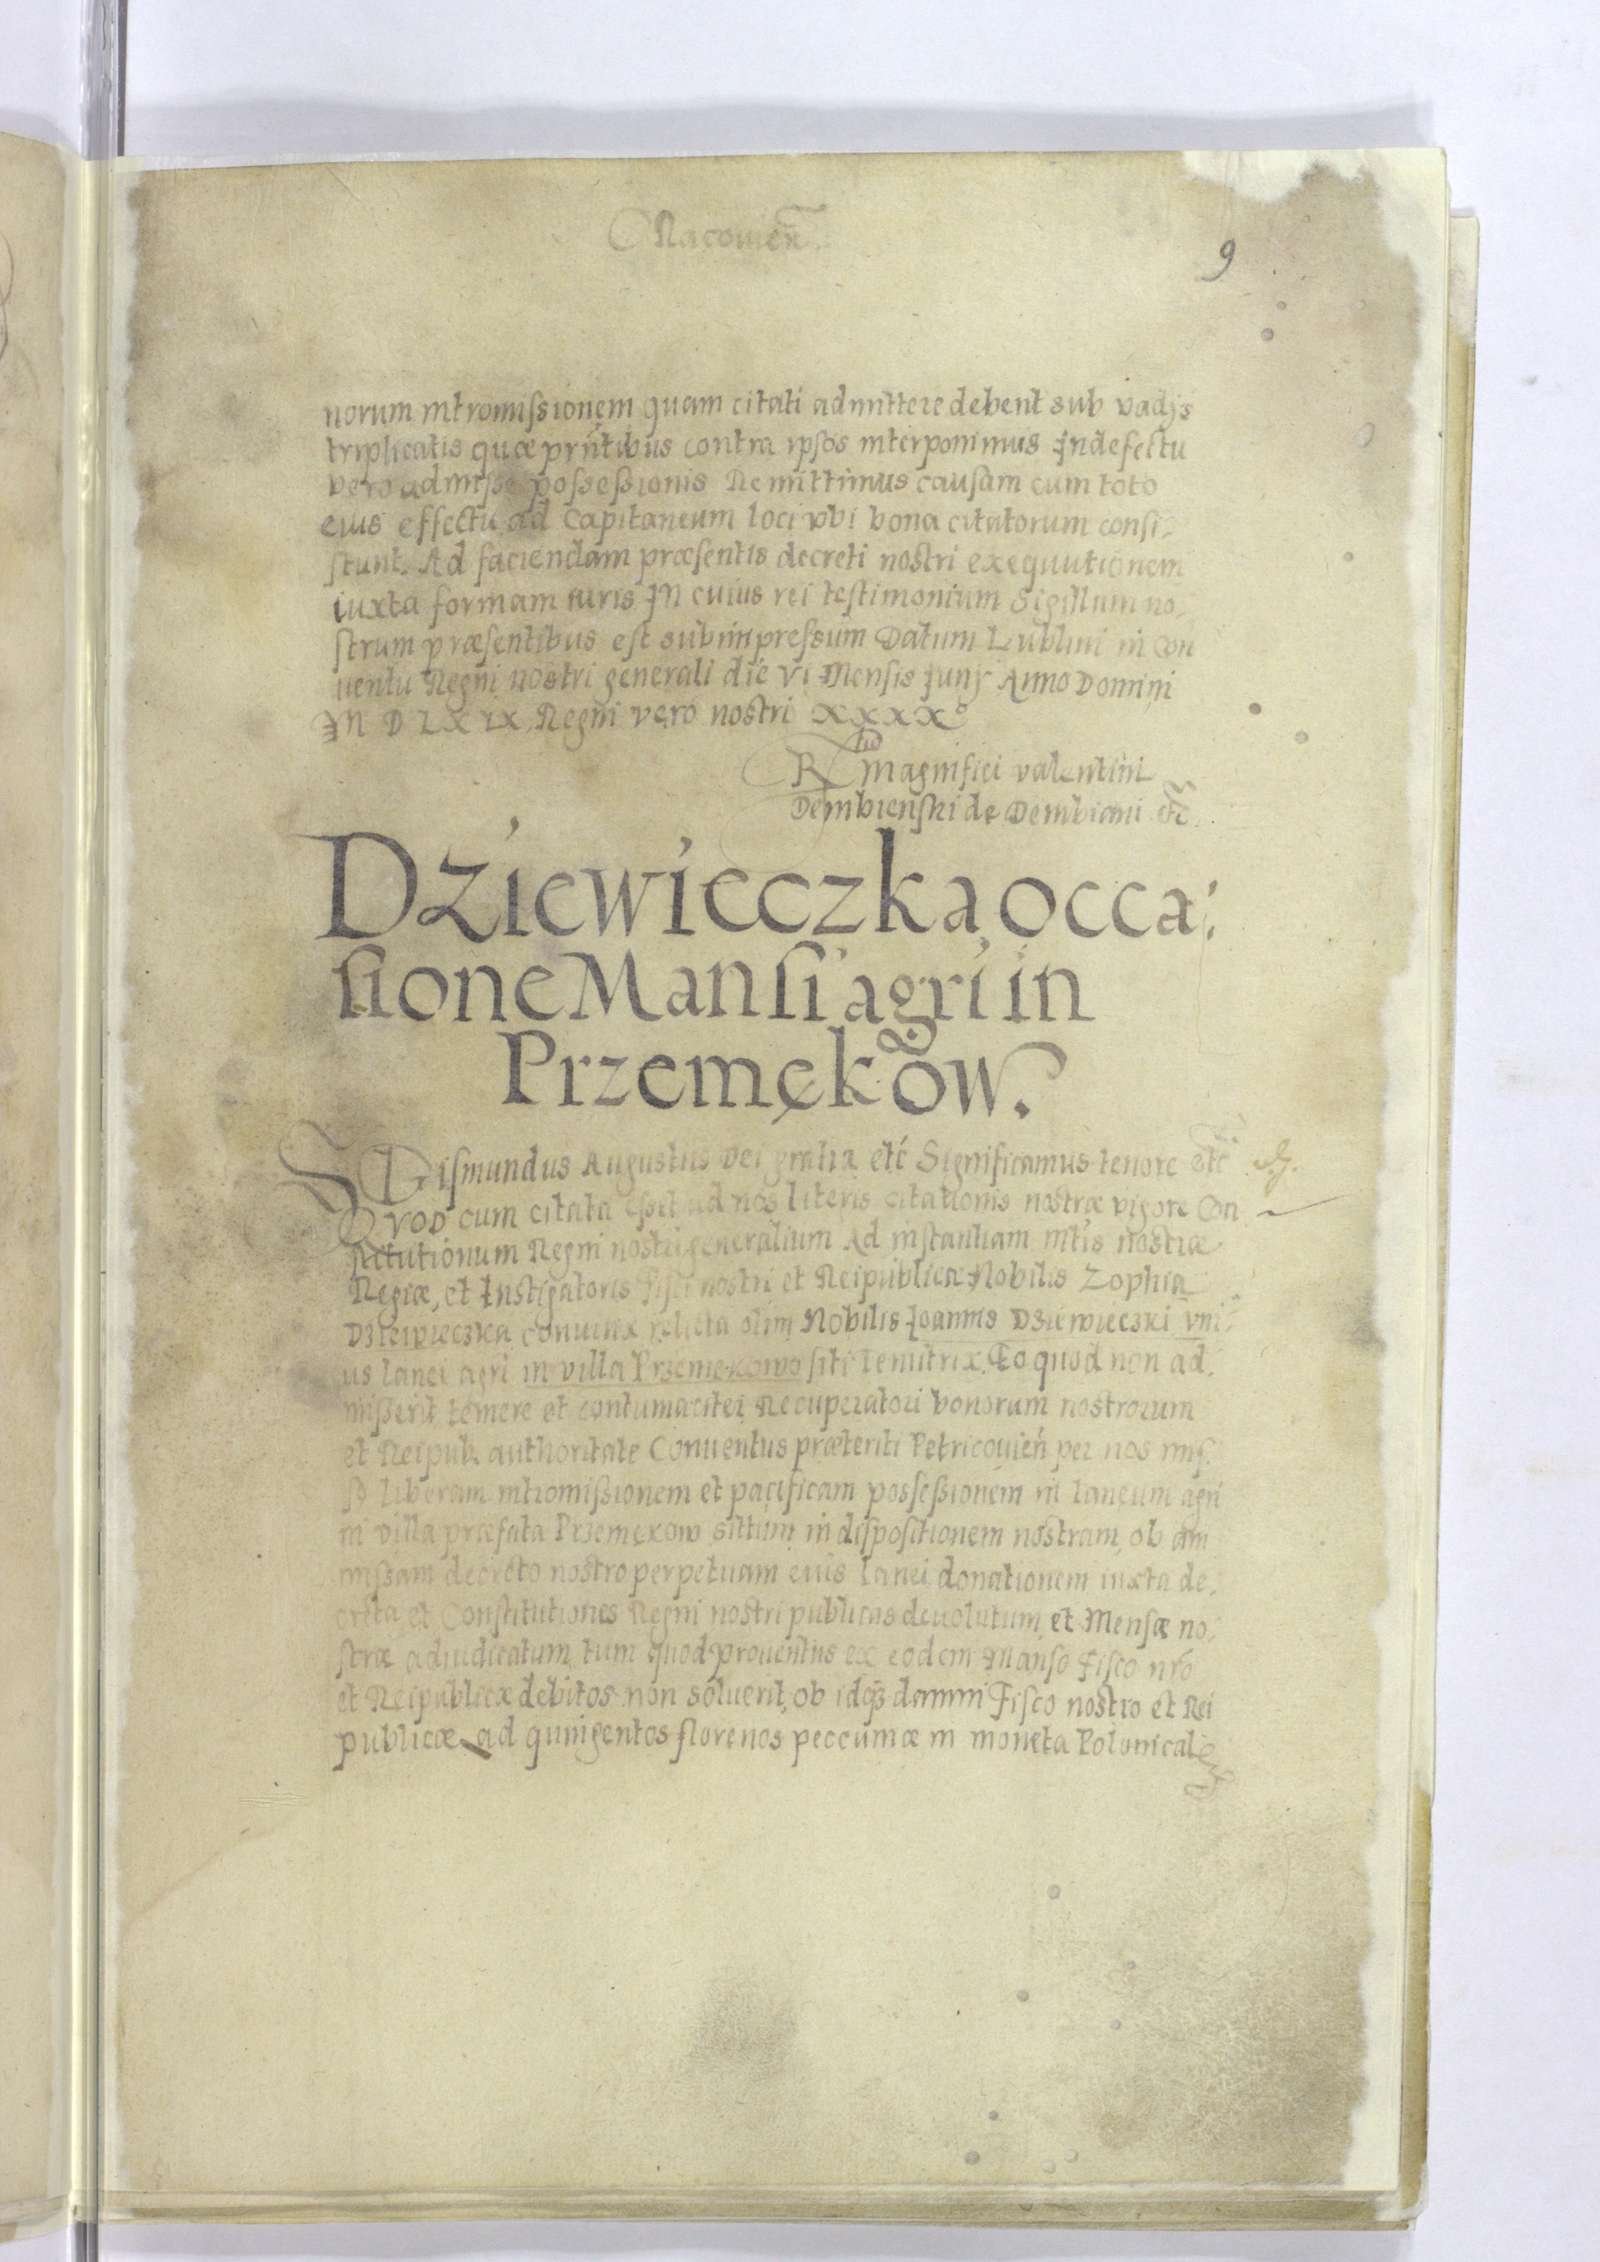 Racouien̄.
9
norum intromissionem quam citati admittere debent sub vadijs
triplicatis quæ pn̄tibus contra ipsos interponimus Indefectu
vero admissæ possessionis Remittimus causam cum toto
eius effectu ad Capitaneum loci vbi bona citatorum consi-
stunt. Ad faciendam præsentis decreti nostri exequutionem
iuxta formam iuris In cuius rei testimonium Sigillum no-
strum præsentibus est subimpressum Datum Lublini in Con
uentu Regni nostri generali die VI Mensis Junij Anno Domini
M D LXIX Regni vero nostri XXXX°
Rtio Magnifici Valentini
Dembienski de Dembiani etc̄.
Dziewieczka occa-
sione Mansi agri in
Przemęków.
Sigismundus Augustus Dei gratia etć Significamus tenore etc̄
Qvod cum citata esset ad nos literis citationis nostræ vigore Con
stitutionum Regni nostri generalium Ad instantiam mtis nostræ
Regiæ, et Instigatoris Fisci nostri et Reipublicæ Nobilis Zophia
Dziewieczka conuicta relicta olim Nobilis Joannis Dziewieczki vni-
us lanei agri in villa Przemekowo siti tenutrix. Eo quod non ad-
misserit temere et contumaciter Recuperatori bonorum nostrorum
et Reipub. authoritate Conuentus præteriti Petricouień per nos mis-
so liberam intromissionem et pacificam possessionem in laneum agri
in villa præfata Przemekow situm in dispositionem nostram, ob am
missam decreto nostro perpetuam eius lanei donationem iuxta de-
creta et Constitutiones Regni nostri publicas deuolutum et Mensæ no-
stræ adiudicatum tum quod prouentus ex eodem Manso Fisco nr̄o
et Reipublicæ debitos non soluerit, ob idq3 damni Fisco nostro et Rei
publicæ ad quingentos florenos peccuniæ in moneta Polonicali